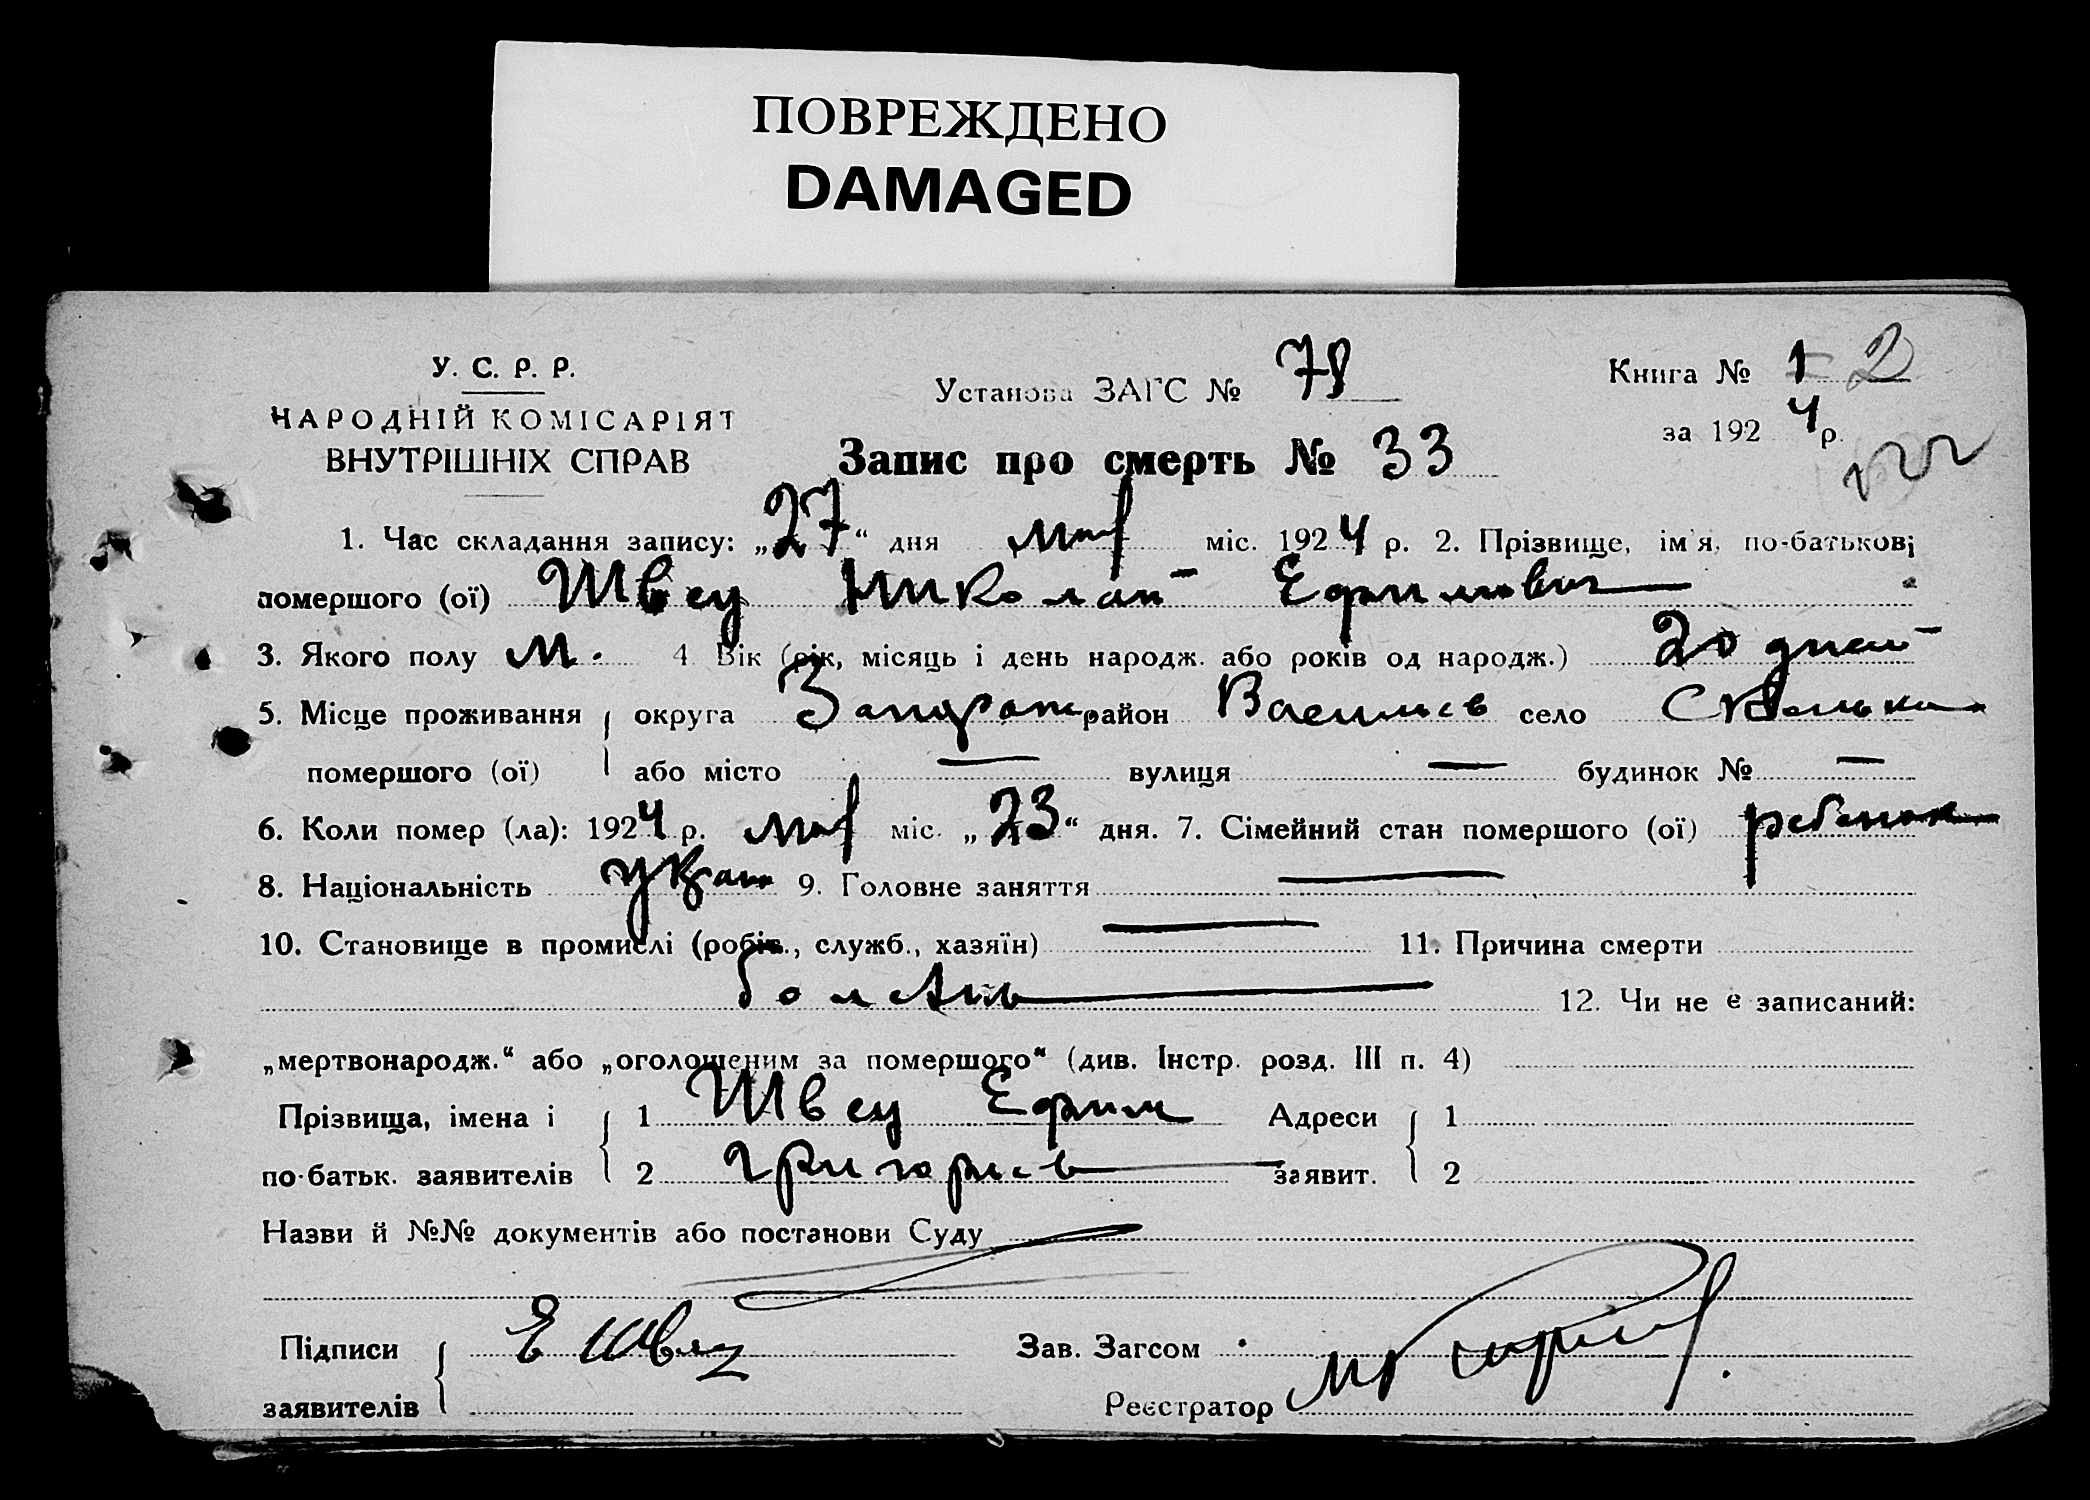 ПОВРЕЖДЕНО
DAMAGED
У. С. Р. Р.
НАРОДНІЙ КОМІСАРІЯТ
ВНУТРІШНІХ СПРАВ
Установа ЗАГС № 78
Книга № 1 2
за 1924 р.
Запис про смерть № 33
1. Час складання запису: „27“ дня мар міс. 1924 р. 2. Прізвище, ім'я, по-батькові
помершого (ої) Швец Николай Ефимович
3. Якого полу м. 4 Вік (рік, місяць і день народж. або років од народж.) 20 дней
5. Місце проживання округа Запорож район Васильев село
помершого (ої) або місто — вулиця — будинок № —
6. Коли помер (ла): 1924 р. мар міс. „23“ дня. 7. Сімейний стан помершого (ої) ребенок
8. Національність украин 9. Головне заняття —
10. Становище в промислі (робіт., служб., хазяїн) — 11. Причина смерти
болезнь 12. Чи не є записаний:
„мертвонародж.“ або „оголошеним за помершого“ (див. Інстр. розд. III п. 4)
Прізвища, імена і 1 Швец Ефим Адреси 1
по-батьк. заявителів 2 Григорьев заявит. 2
Назви й №№ документів або постанови Суду
Підписи Е Швец Зав. Загсом
заявителів Реєстратор